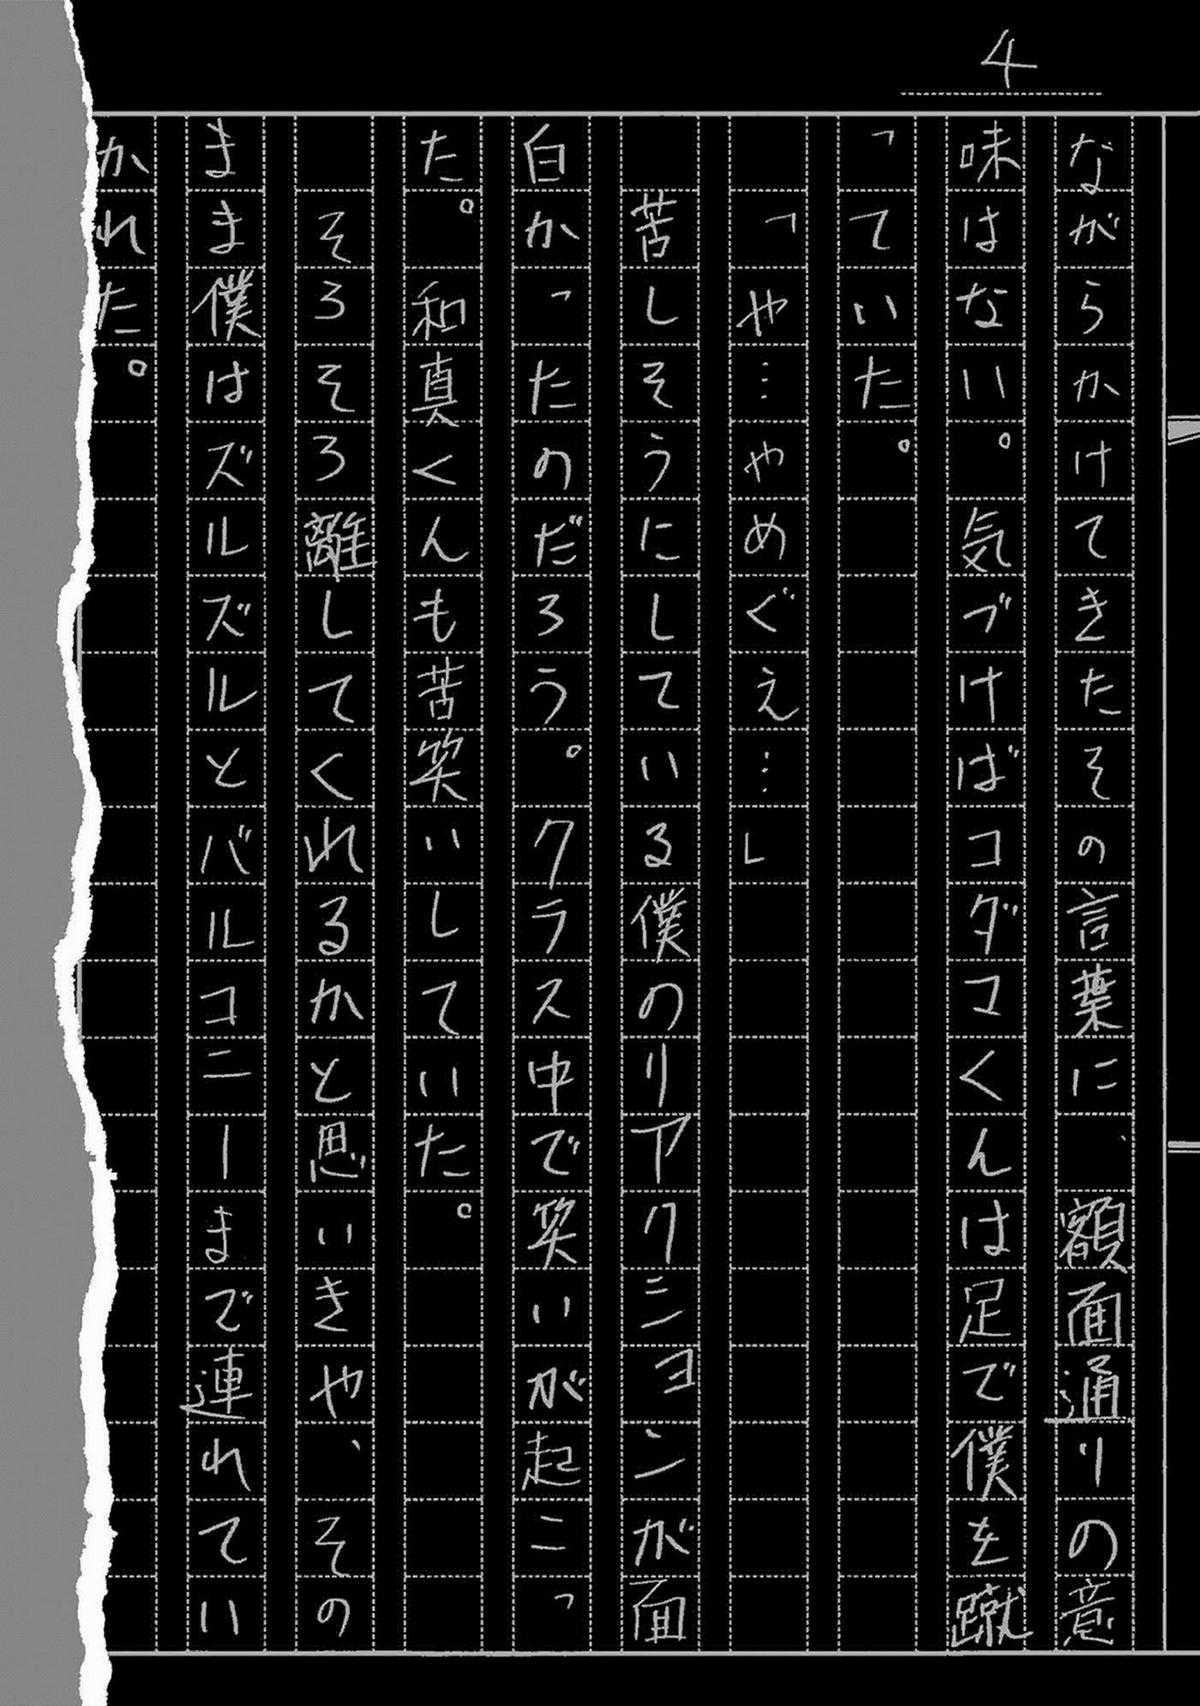 4
ながらかけてきたその言葉に、額面通りの意
味はない。気づけばコダマくんは足で僕を蹴
っていた。
「や…やめぐえ…」
苦しそうにしている僕のリアクションが面
白かったのだろう。クラス中で笑いが起こっ
た。和真くんも苦笑いしていた。
そろそろ離してくれるかと思いきや、その
まま僕はズルズルとバルコニーまで連れてい
かれた。